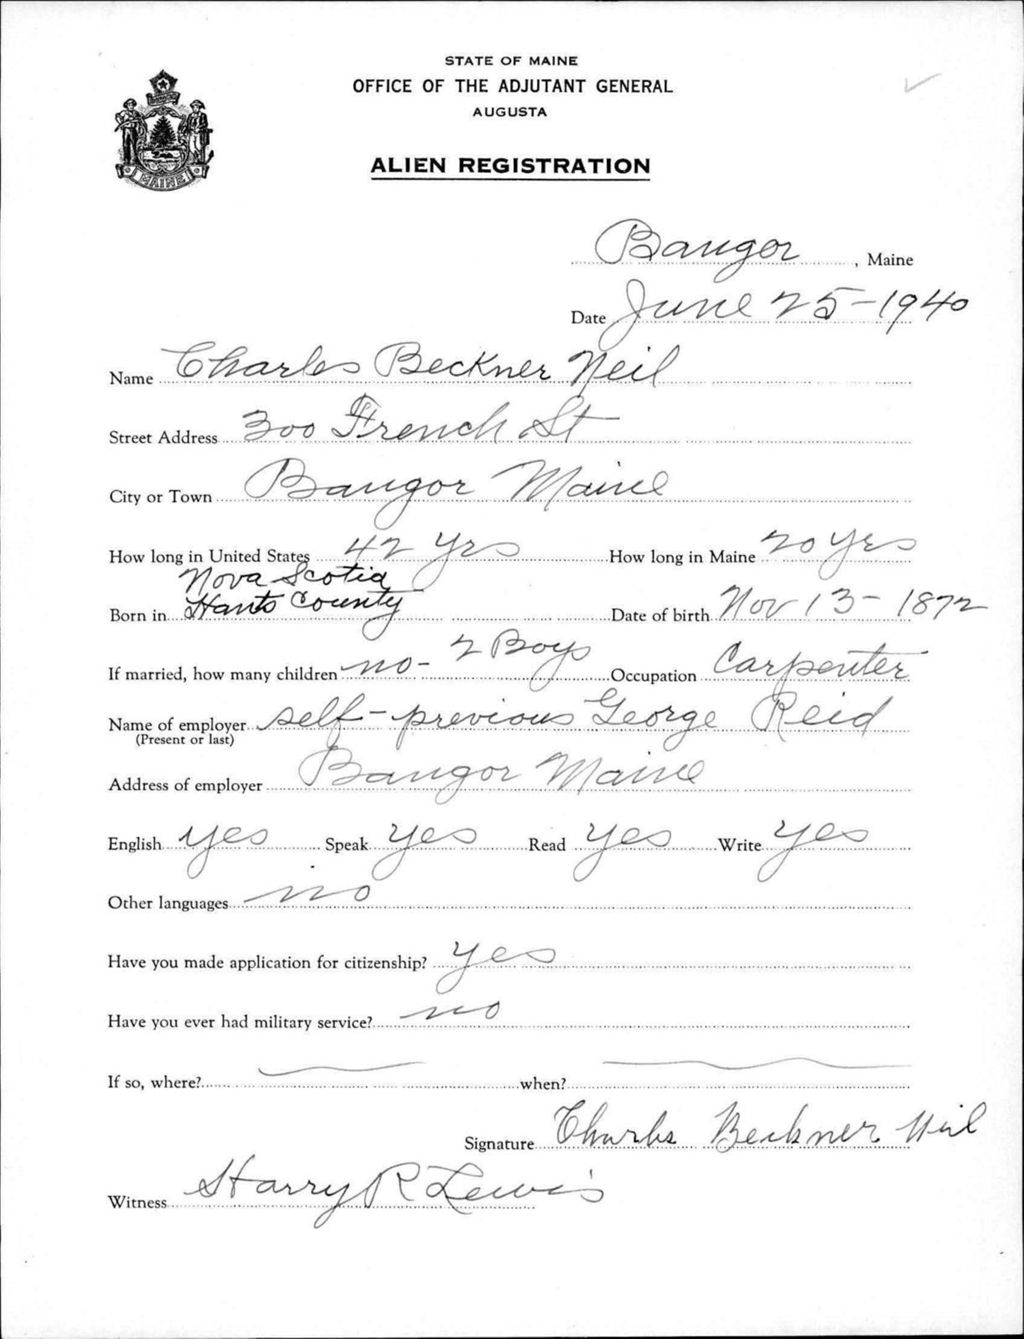 STATE OF MAINE
OFFICE OF THE ADJUTANT GENERAL
AUGUSTA
MAINE
ALIEN REGISTRATION
Bangor, Maine
Date June 25-1940
Name Charles Beckner Neil
Street Address 300 French St
City or Town Bangor Maine
How long in United States 42 yrs How long in Maine 20 yrs
Nova Scotia
Born in Hants County Date of birth Nov 13-1872
If married, how many children no - 2 Boys Occupation Carpenter
Name of employer self - previous George Reid
(Present or last)
Address of employer Bangor Maine
English yes Speak yes Read yes Write yes
Other languages no
Have you made application for citizenship? yes
Have you ever had military service? no
If so, where? when?
Signature Charles Beckner Neil
Witness Harry R Lewis